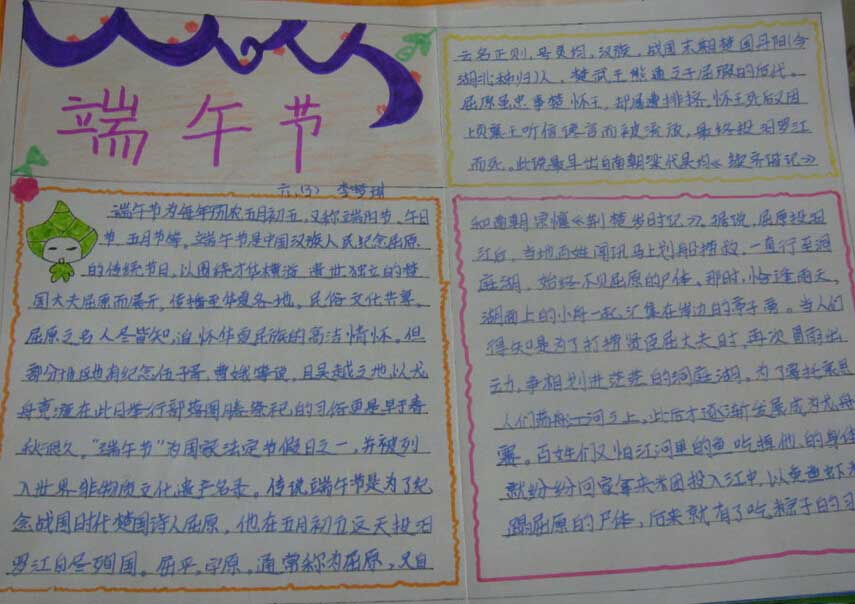 端午节
六.(3) 李梦琪
端午节为每年农历五月初五,又称端阳节、午日
节、五月节等。端午节是中国汉族人民纪念屈原
的传统节日,以围绕才华横溢、遗世独立的楚
国大夫屈原而展开,传播至华夏各地。民俗文化共享。
屈原之名人尽皆知,追怀华夏民族的高洁情怀。但
部分地区也有纪念伍子胥、曹娥等说,且吴越之地以龙
舟竞渡在此日举行部落图腾祭祀的习俗更是早于春
秋很久。“端午节”为国家法定节假日之一,并被列
入世界非物质文化遗产名录。传说端午节是为了纪
念战国时代楚国诗人屈原,他在五月初五这天投汨
罗江自尽殉国。屈平,字原,通常称为屈原,又自
云名正则,号灵均,汉族,战国末期楚国丹阳(今
湖北秭归)人,楚武王熊通之子屈瑕的后代。
屈原虽忠事楚怀王,却屡遭排挤,怀王死后又因
顷襄王听信谗言而被流放,最终投汨罗江
而死。此说最早出自南朝梁代吴均《续齐谐记》
和南朝宗懔《荆楚岁时记》。据说,屈原投汨
江后,当地百姓闻讯马上划船捞救,一直行至洞
庭湖,始终不见屈原的尸体。那时,恰逢雨天,
湖面上的小舟一起汇集在岸边的亭子旁。当人们
得知是为了打捞贤臣屈大夫时,再次冒雨出
动,争相划进茫茫的洞庭湖。为了寄托哀思
人们荡舟江河之上,此后才逐渐发展成为龙舟
赛。百姓们又怕江河里的鱼吃掉他的身体
就纷纷回家拿来米团投入江中,以免鱼虾
蹋屈原的尸体,后来就有了吃粽子的习